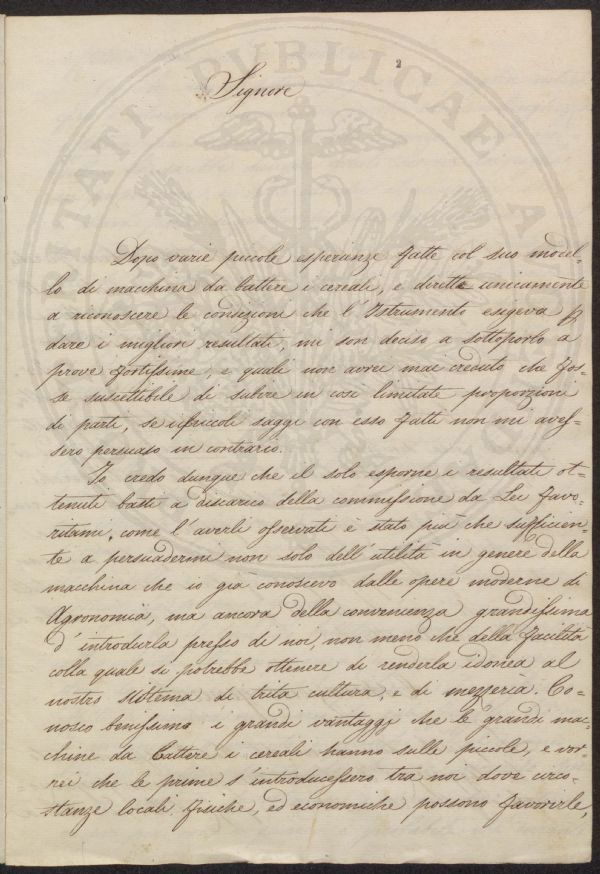 2
Signore
Dopo varie piccole esperienze fatte col suo model-
lo di macchina da battere i cereali, e dirette unicamente
a riconoscere le condizioni che l'Istrumento esigeva p
dare i migliori resultati, mi son deciso a sottoporlo a
prove fortissime, e quali non avrei mai creduto che fos-
se suscettibile di subire in così limitate proporzioni
di parti, se i piccoli saggi con esso fatti non mi aves-
sero persuaso in contrario.
Io credo dunque che il solo esporne i resultati ot-
tenuti basti a discarico della commissione da Lei favo-
ritami, come l'averli osservati è stato più che sufficien-
te a persuadermi non solo dell'utilità in genere della
macchina che io già conoscevo dalle opere moderne di
Agronomia, ma ancora della convenienza grandissima
d'introdurla presso di noi, non meno che della facilità
colla quale si potrebbe ottenere di renderla idonea al
nostro sistema di trita cultura, e di mezzeria. Co-
nosco benissimo i grandi vantaggj che le grandi mac-
chine da battere i cereali hanno sulle piccole, e vor-
rei che le prime s'introducessero tra noi dove circo-
stanze locali fisiche, ed economiche possono favorirle,